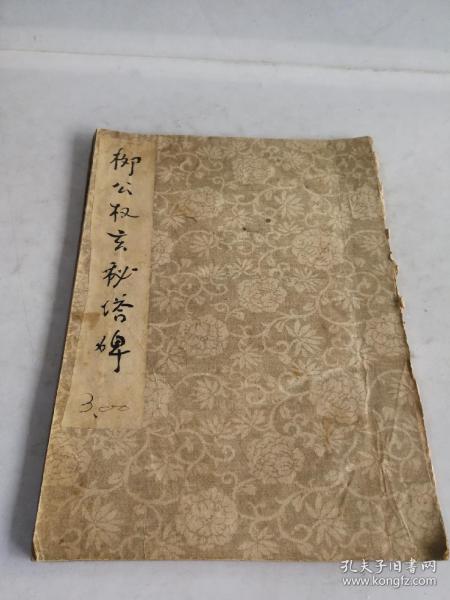 柳公权玄秘塔碑
3.00
孔夫子旧书网
www.kongfz.com